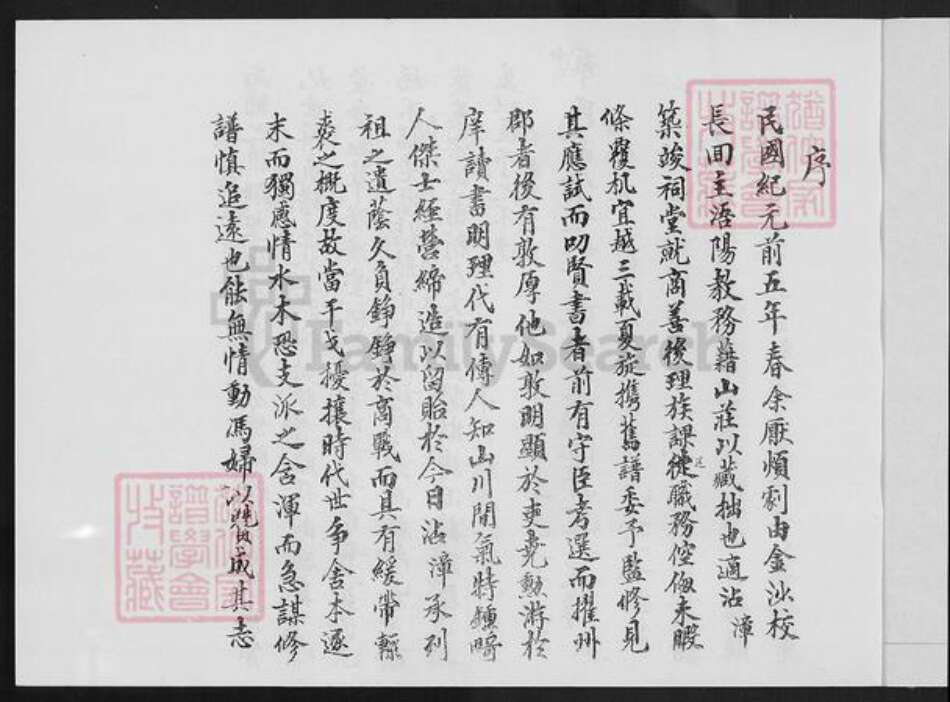 序
民國紀元前五年春余厭煩劇由金沙校
長回主浯陽教務藉山莊以藏拙也適沾漳
築竣祠堂就商善後理族課徒職務倥傯未暇
條覆机宜越三載夏旋携舊譜委予監修見
其應試而叨賢書者前有守臣考選而擢州
郡者後有敦厚他如敦明顯於吏堯勲游於
庠讀書明理代有傳人知山川閒氣特鍾疇
人傑士經營締造以留貽於今日沾漳承列
祖之遺蔭久負錚錚於商戰而具有緩帶輕
裘之概度故當干戈擾攘時代世爭舍本逐
末而獨慮情水木恐支派之含渾而急謀修
譜慎追遠也能無情動馮婦以贊成其志
譜學會
收藏
譜學會
收藏
FamilySearch